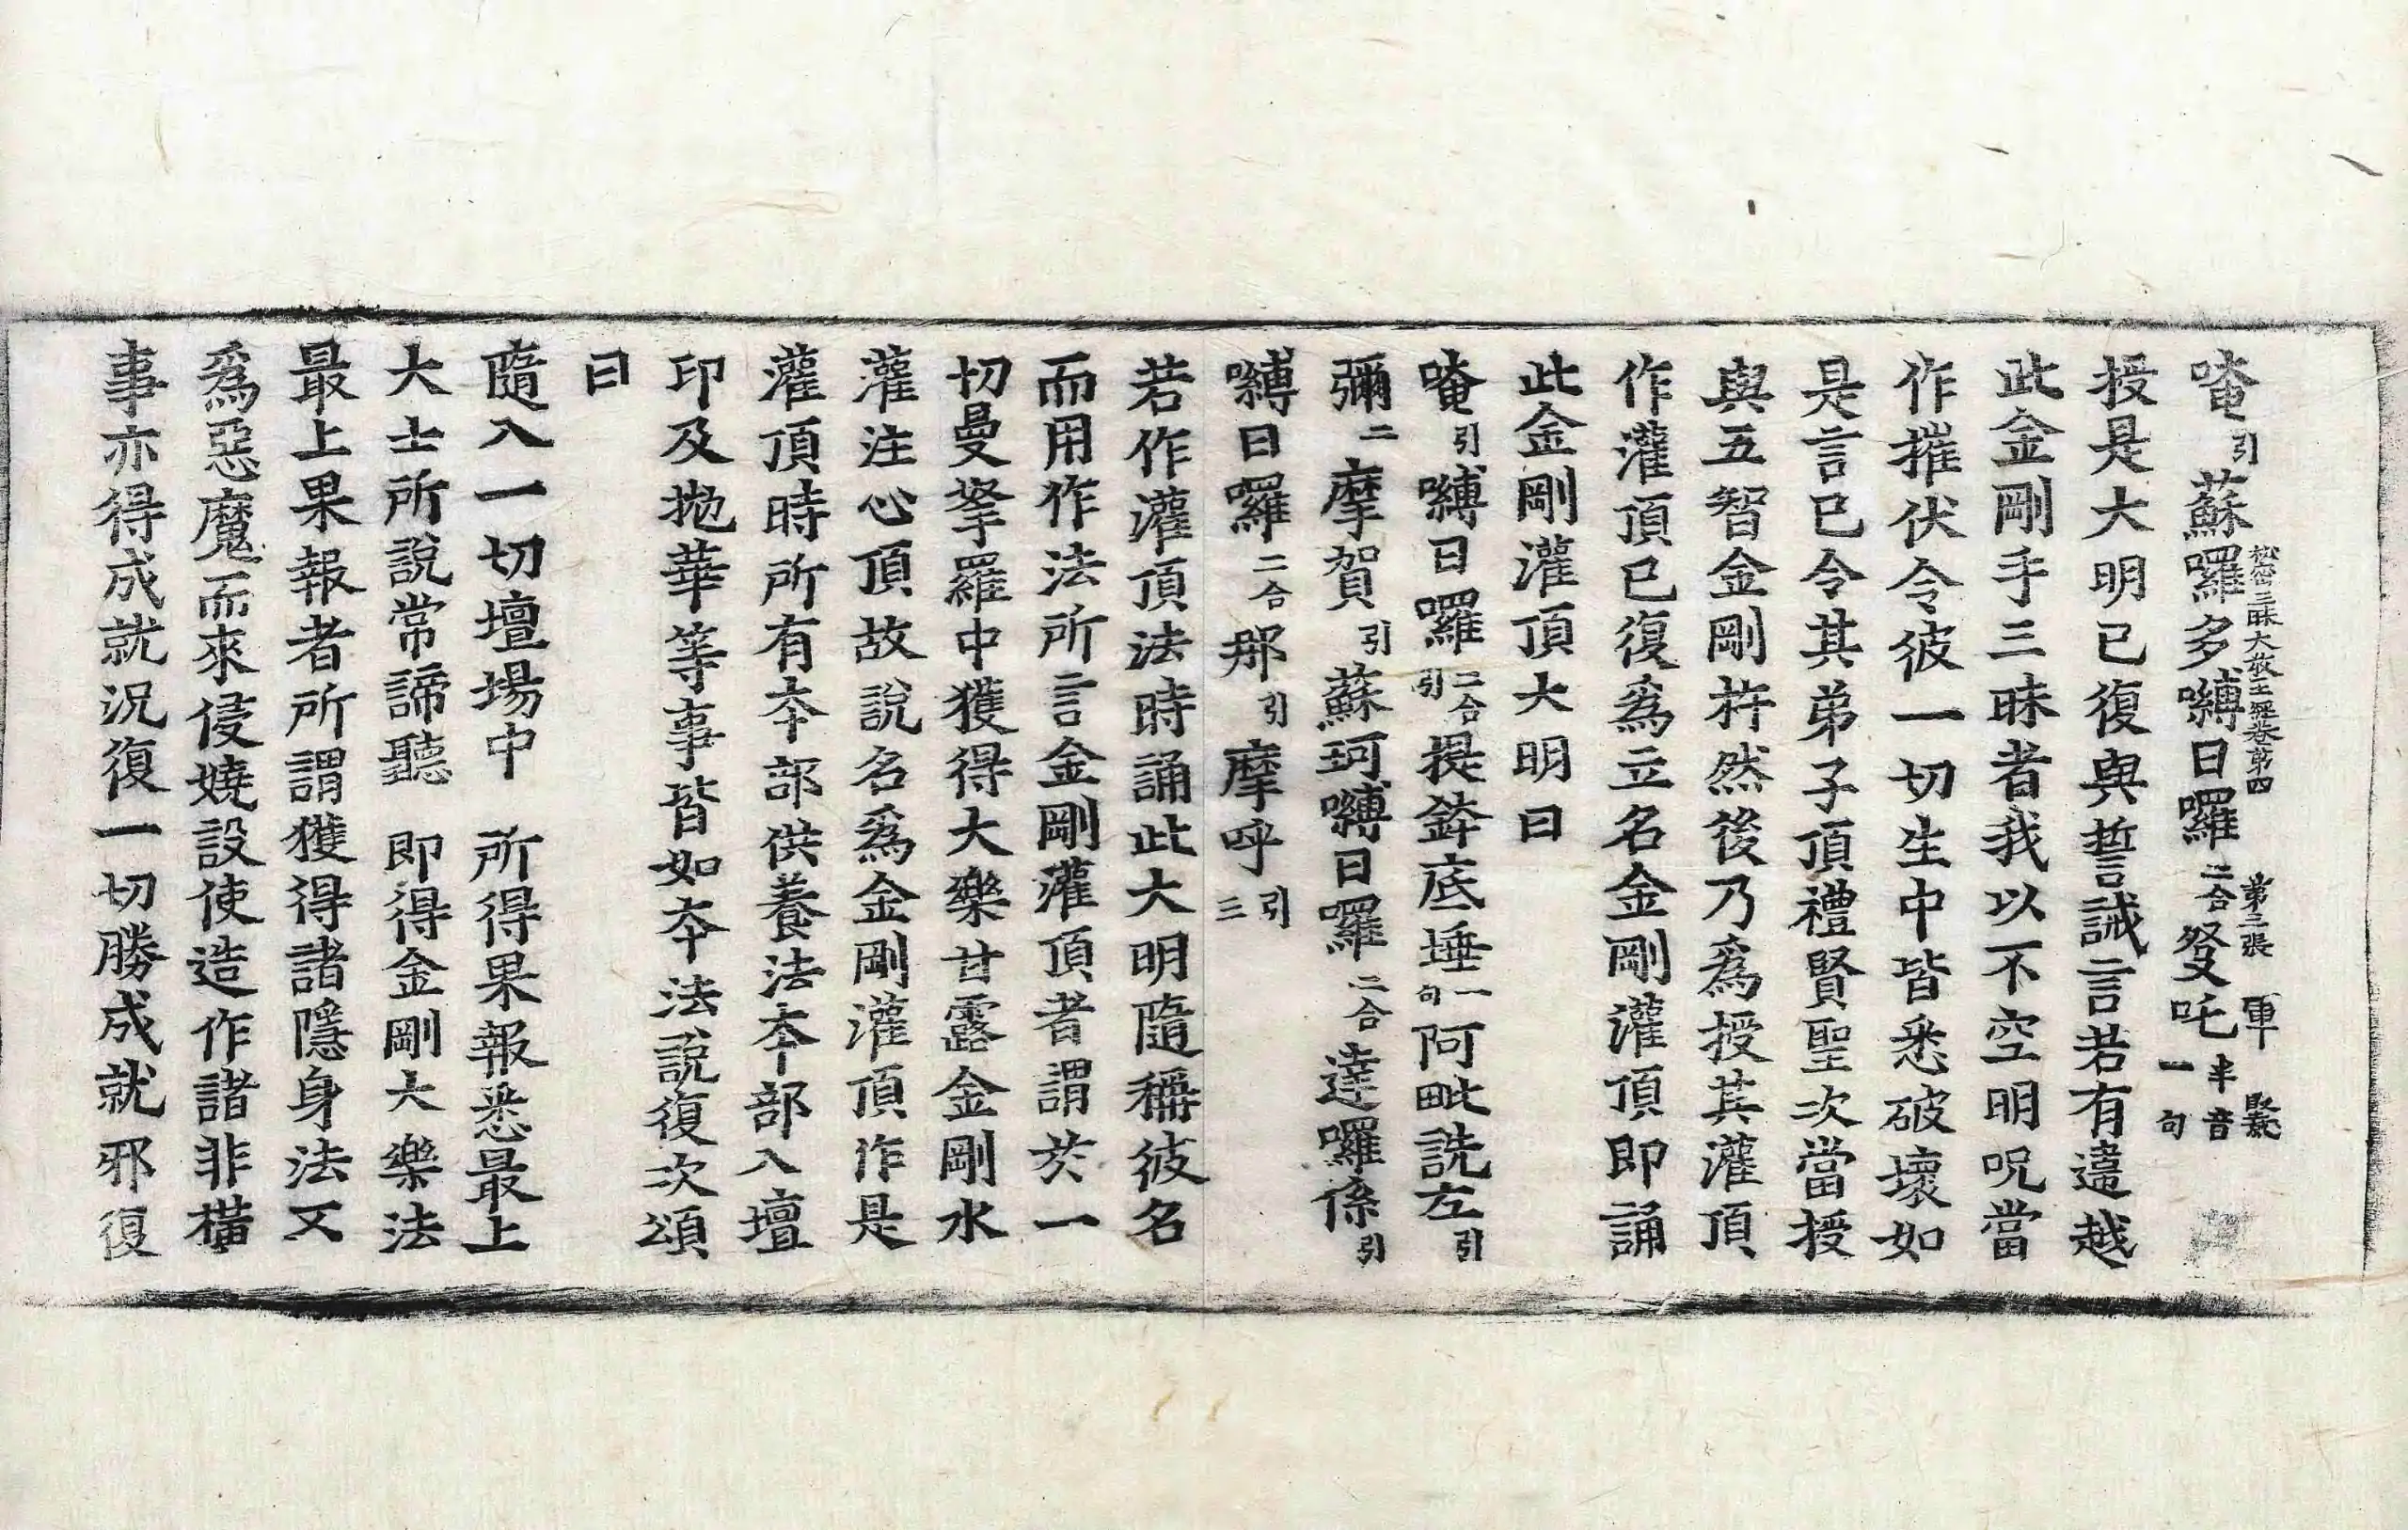 祕密三昧大教王經卷第四　第三張　軍
唵引蘇囉多嚩日囉二合發吒半音一句
授是大明已復與誓誡言若有違越
此金剛手三昧者我以不空明呪當
作摧伏令彼一切生中皆悉破壞如
是言已令其弟子頂禮賢聖次當授
與五智金剛杵然後乃為授其灌頂
作灌頂已復為立名金剛灌頂即誦
此金剛灌頂大明曰
唵引嚩日囉二合引提鉢底埵一句阿毗詵左引
彌二摩賀引蘇珂嚩日囉二合達囉係引
嚩日囉二合那引摩呼引三
若作灌頂法時誦此大明隨稱彼名
而用作法所言金剛灌頂者謂於一
切曼拏羅中獲得大樂甘露金剛水
灌注心頂故說名為金剛灌頂作是
灌頂時所有本部供養法本部入壇
印及拋華等事皆如本法說復次頌
曰
隨入一切壇場中　所得果報悉最上
大士所說常諦聽　即得金剛大樂法
最上果報者所謂獲得諸隱身法又
為惡魔而來侵嬈設使造作諸非橫
事亦得成就況復一切勝成就邪復